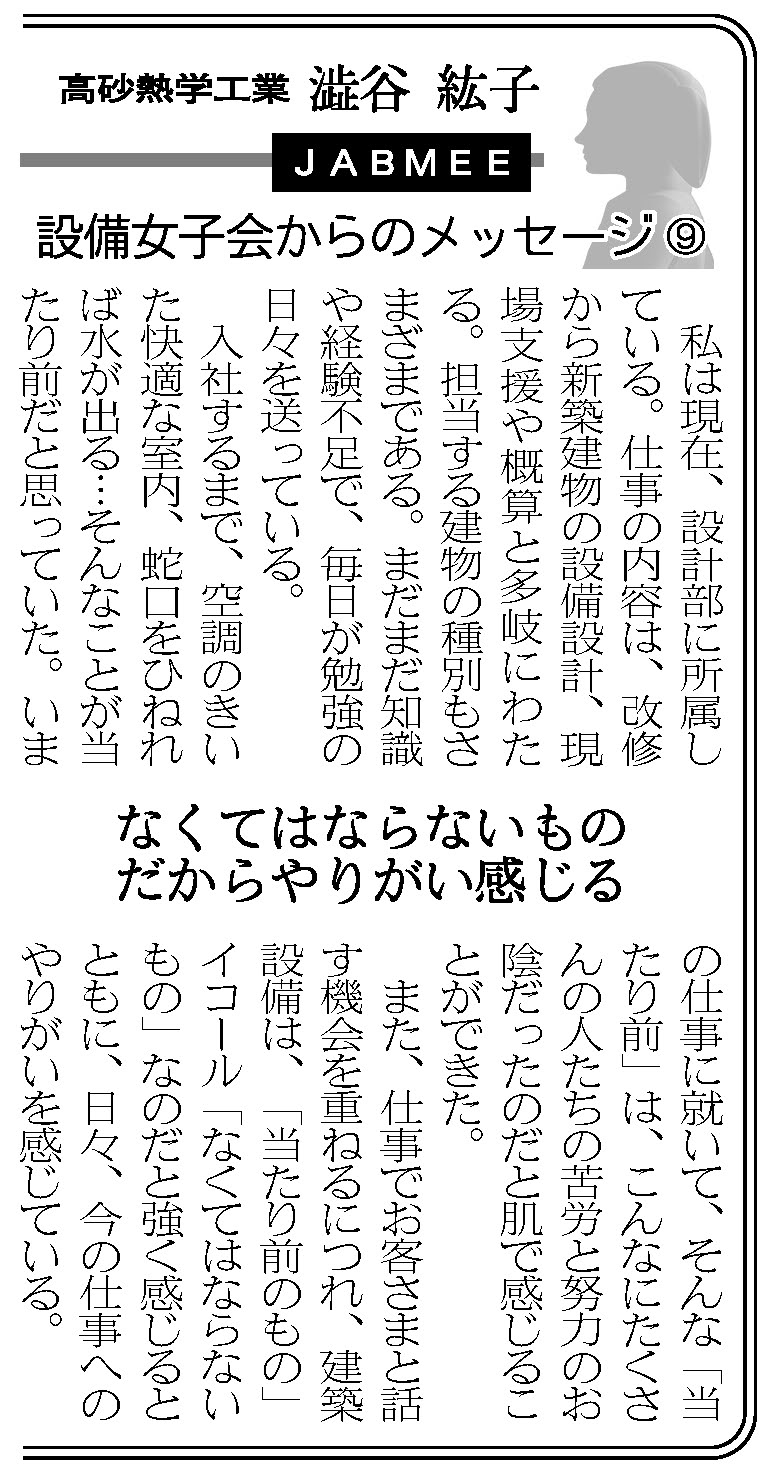 高砂熱学工業 澁谷 紘子
JABMEE
設備女子会からのメッセージ⑨
私は現在、設計部に所属し
ている。仕事の内容は、改修
から新築建物の設備設計、現
場支援や概算と多岐にわた
る。担当する建物の種別もさ
まざまである。まだまだ知識
や経験不足で、毎日が勉強の
日々を送っている。
入社するまで、空調のきい
た快適な室内、蛇口をひねれ
ば水が出る…そんなことが当
たり前だと思っていた。いま
なくてはならないもの
だからやりがい感じる
の仕事に就いて、そんな「当
たり前」は、こんなにたくさ
んの人たちの苦労と努力のお
陰だったのだと肌で感じるこ
とができた。
また、仕事でお客さまと話
す機会を重ねるにつれ、建築
設備は、「当たり前のもの」
イコール「なくてはならない
もの」なのだと強く感じると
ともに、日々、今の仕事への
やりがいを感じている。